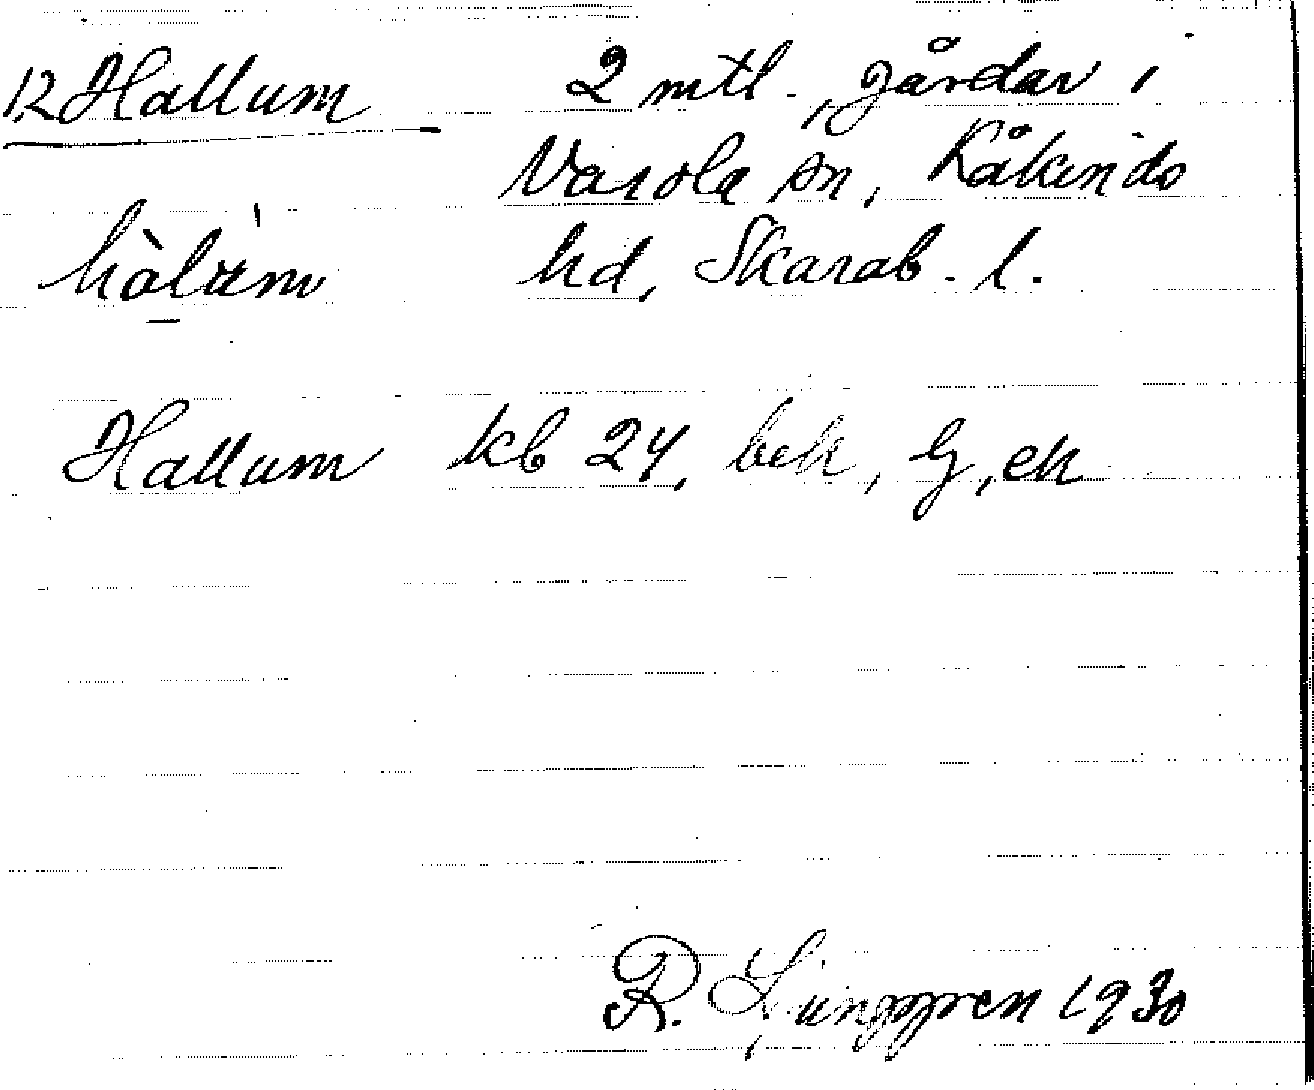 12 Hallum 2 mtl., gårdar i
Varola sn, Kåkinds
hàlum hd, Skarab. l.
Hallum kb 24, bek, G, ek
R. Ljunggren 1930